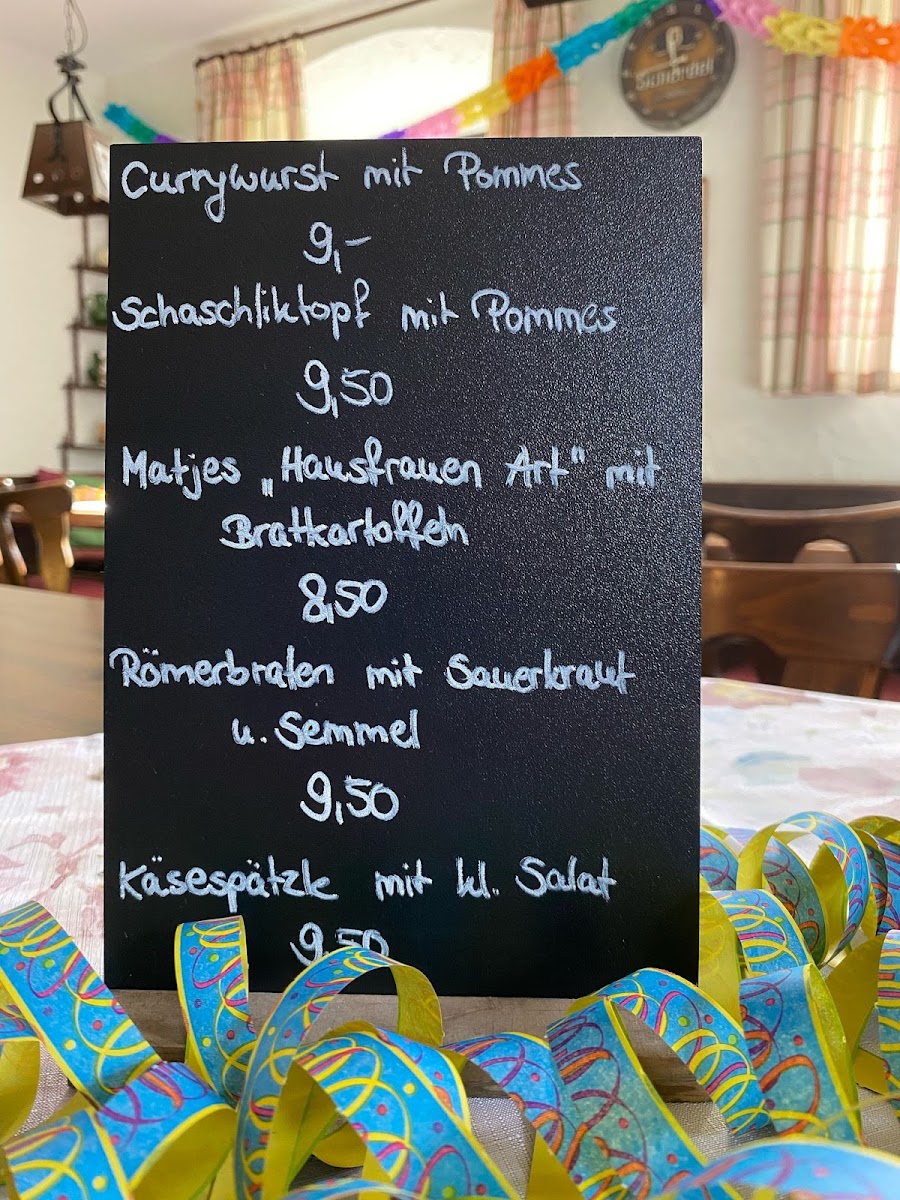 Currywurst mit Pommes
9,-
Schaschliktopf mit Pommes
9,50
Matjes „Hausfrauen Art" mit
Bratkartoffeln
8,50
Römerbraten mit Sauerkraut
u. Semmel
9,50
Käsespätzle mit kl. Salat
9,50